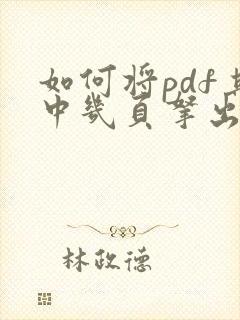 如何将pdf
中几页拏出
林政德